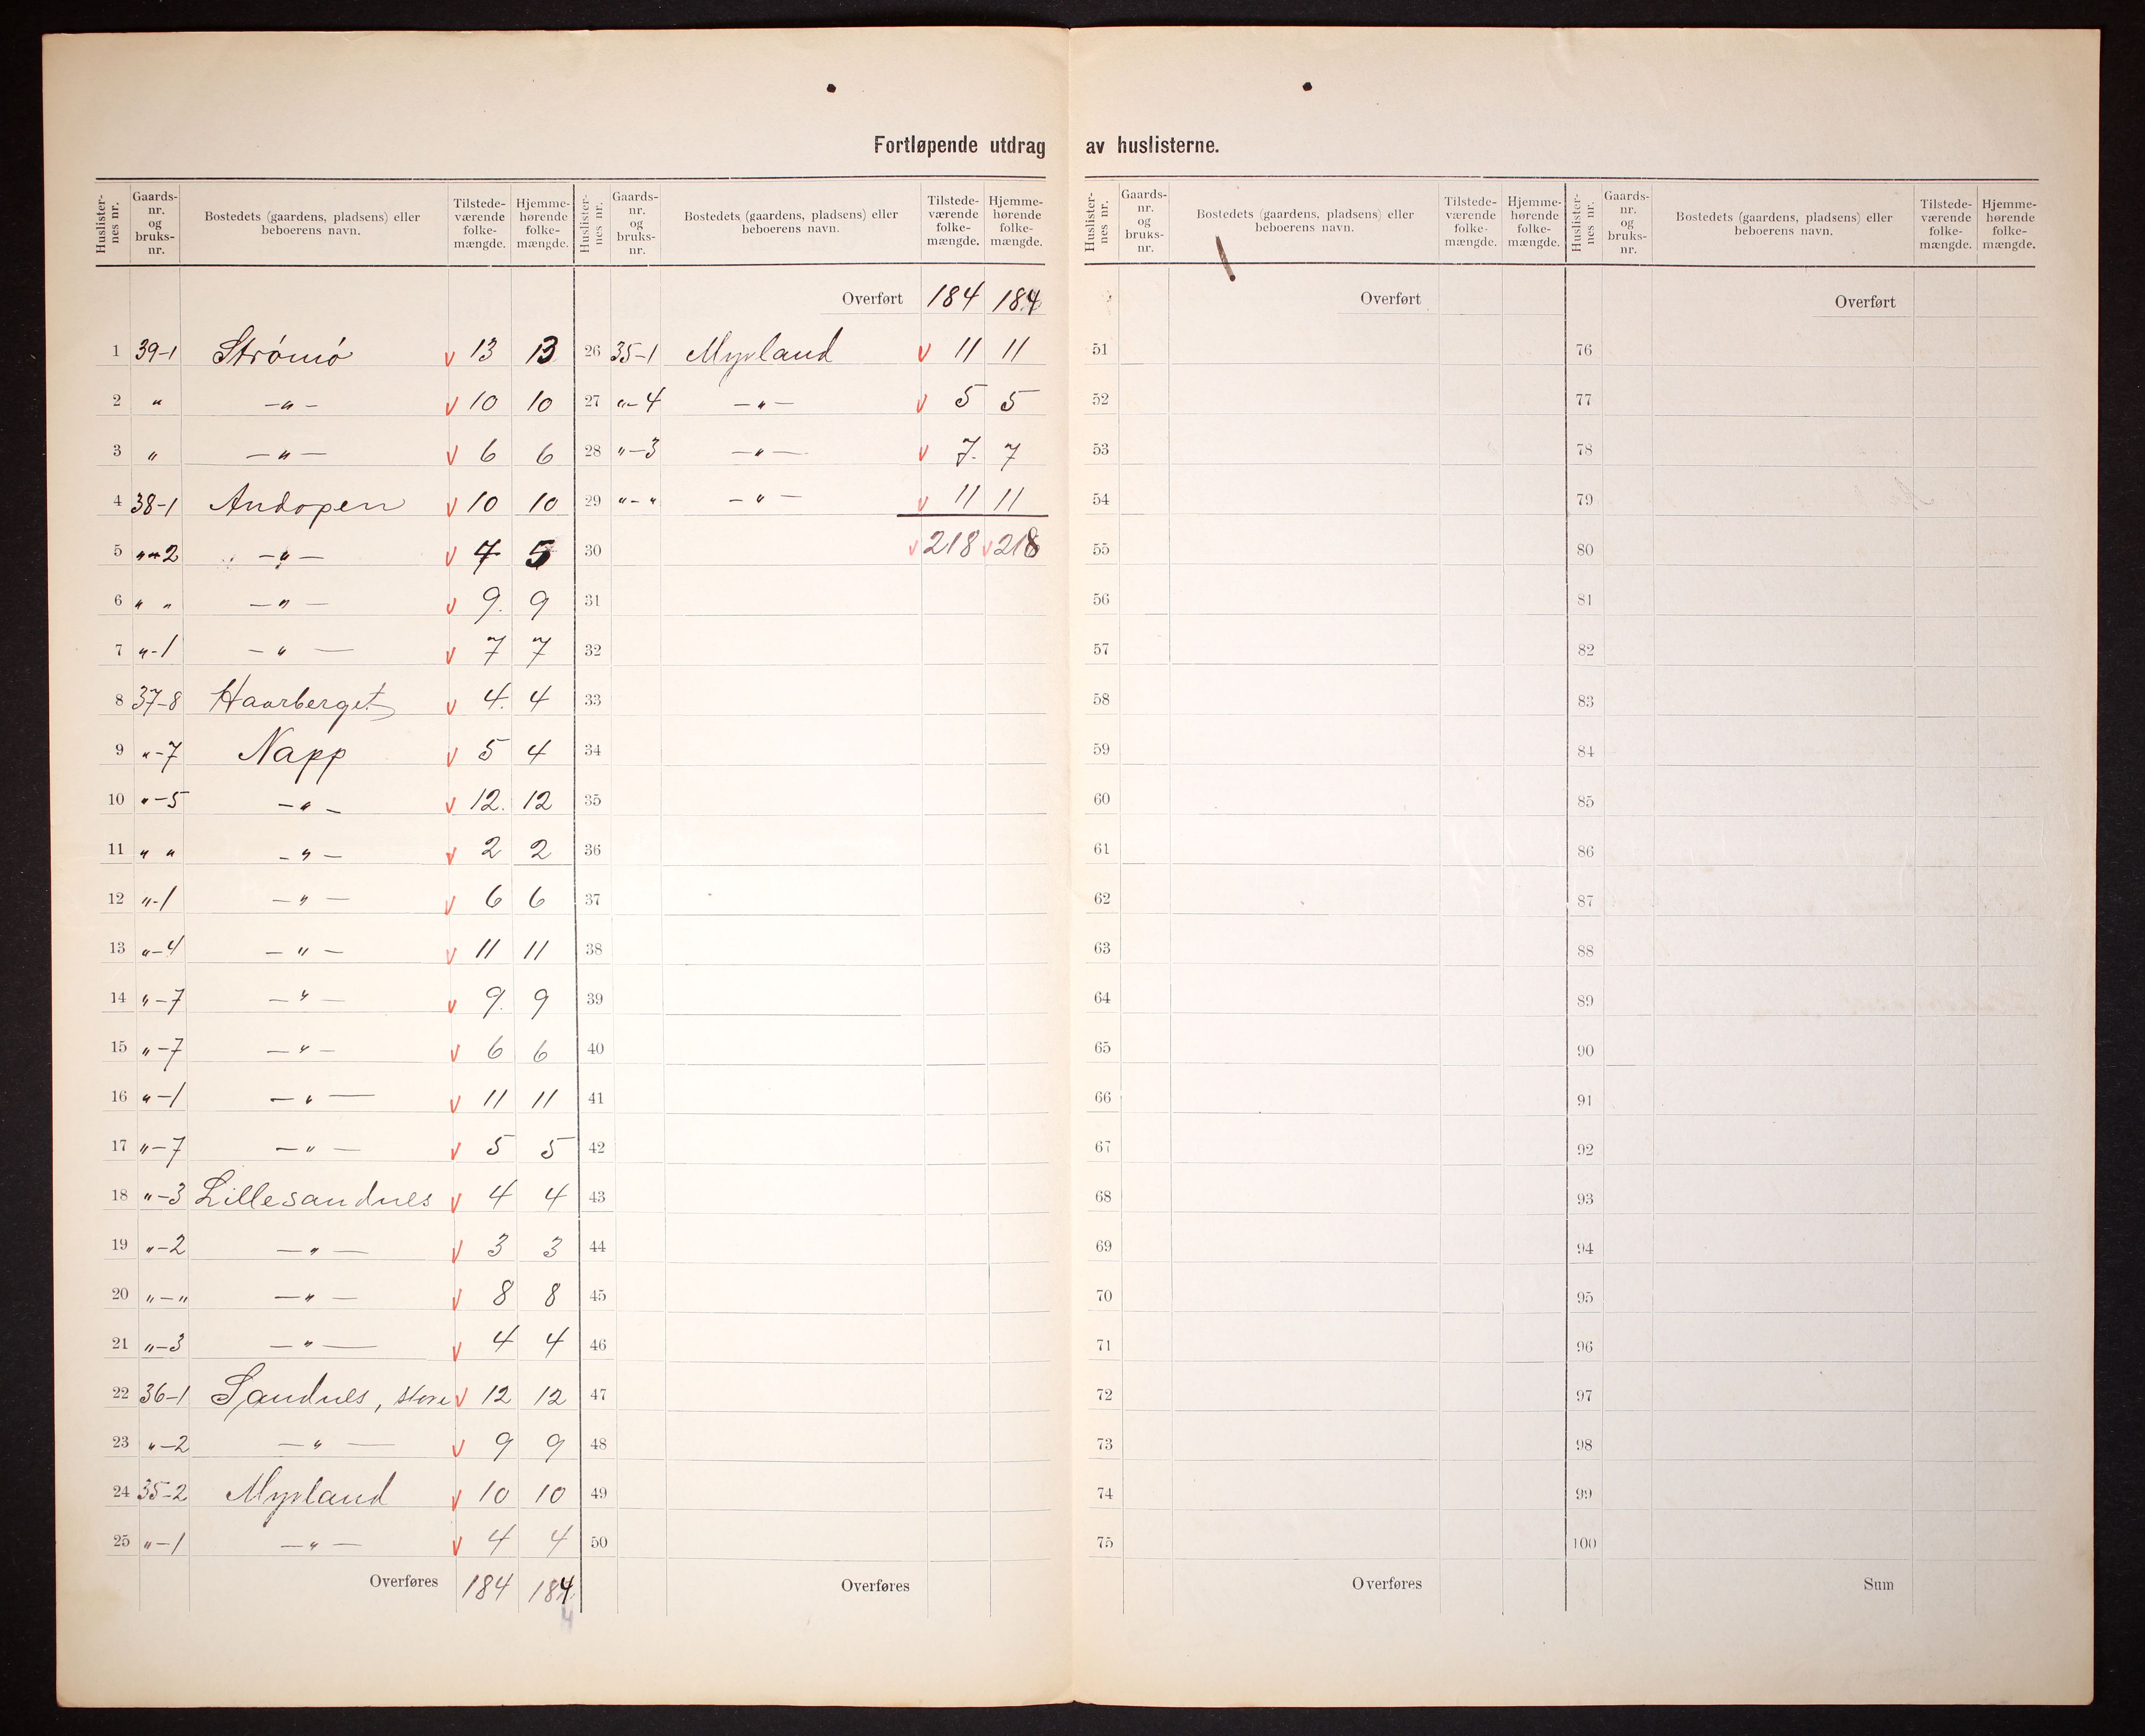 Fortløpende utdrag av huslisterne.
Huslisternes nr. Gaardsnr. og bruksnr. Bostedets (gaardens, pladsens) eller beboerens navn. Tilstedeværende folkemængde. Hjemmehørende folkemængde.
1 39-1 Strømø v 13 13
2 " -"- v 10 10
3 " -"- v 6 6
4 38-1 Andopen v 10 10
5 "-2 -"- v 7 5
6 " " -"- v 9. 9
7 "-1 -"- v 7 7
8 37-8 Haarberget v 4. 4
9 "-7 Napp v 5 4
10 "-5 -"- v 12. 12
11 " " -"- v 2 2
12 "-1 -"- v 6 6
13 "-4 -"- v 11 11
14 "-7 -"- v 9. 9
15 "-7 -"- v 6 6
16 "-1 -"- v 11 11
17 "-7 -"- v 5 5
18 "-3 Lillesandnes v 4 4
19 "-2 -"- v 3 3
20 "-" -"- v 8 8
21 "-3 -"- v 4 4
22 36-1 Sandnes, store v 12 12
23 "-2 -"- v 9 9
24 35-2 Myrland v 10 10
25 "-1 -"- v 4 4
Overføres 184 184
4
Huslisternes nr. Gaardsnr. og bruksnr. Bostedets (gaardens, pladsens) eller beboerens navn. Tilstedeværende folkemængde. Hjemmehørende folkemængde.
Overført 184 184
26 35-1 Myrland v 11 11
27 "-4 -"- v 5 5
28 "-3 -"- v 7. 7
29 "-" -"- v 11 11
30 v 218 v 218
31
32
33
34
35
36
37
38
39
40
41
42
43
44
45
46
47
48
49
50
Overføres
Huslisternes nr. Gaardsnr. og bruksnr. Bostedets (gaardens, pladsens) eller beboerens navn. Tilstedeværende folkemængde. Hjemmehørende folkemængde.
Overført
51
52
53
54
55
56
57
58
59
60
61
62
63
64
65
66
67
68
69
70
71
72
73
74
75
Overføres
Huslisternes nr. Gaardsnr. og bruksnr. Bostedets (gaardens, pladsens) eller beboerens navn. Tilstedeværende folkemængde. Hjemmehørende folkemængde.
Overført
76
77
78
79
80
81
82
83
84
85
86
87
88
89
90
91
92
93
94
95
96
97
98
99
100
Sum